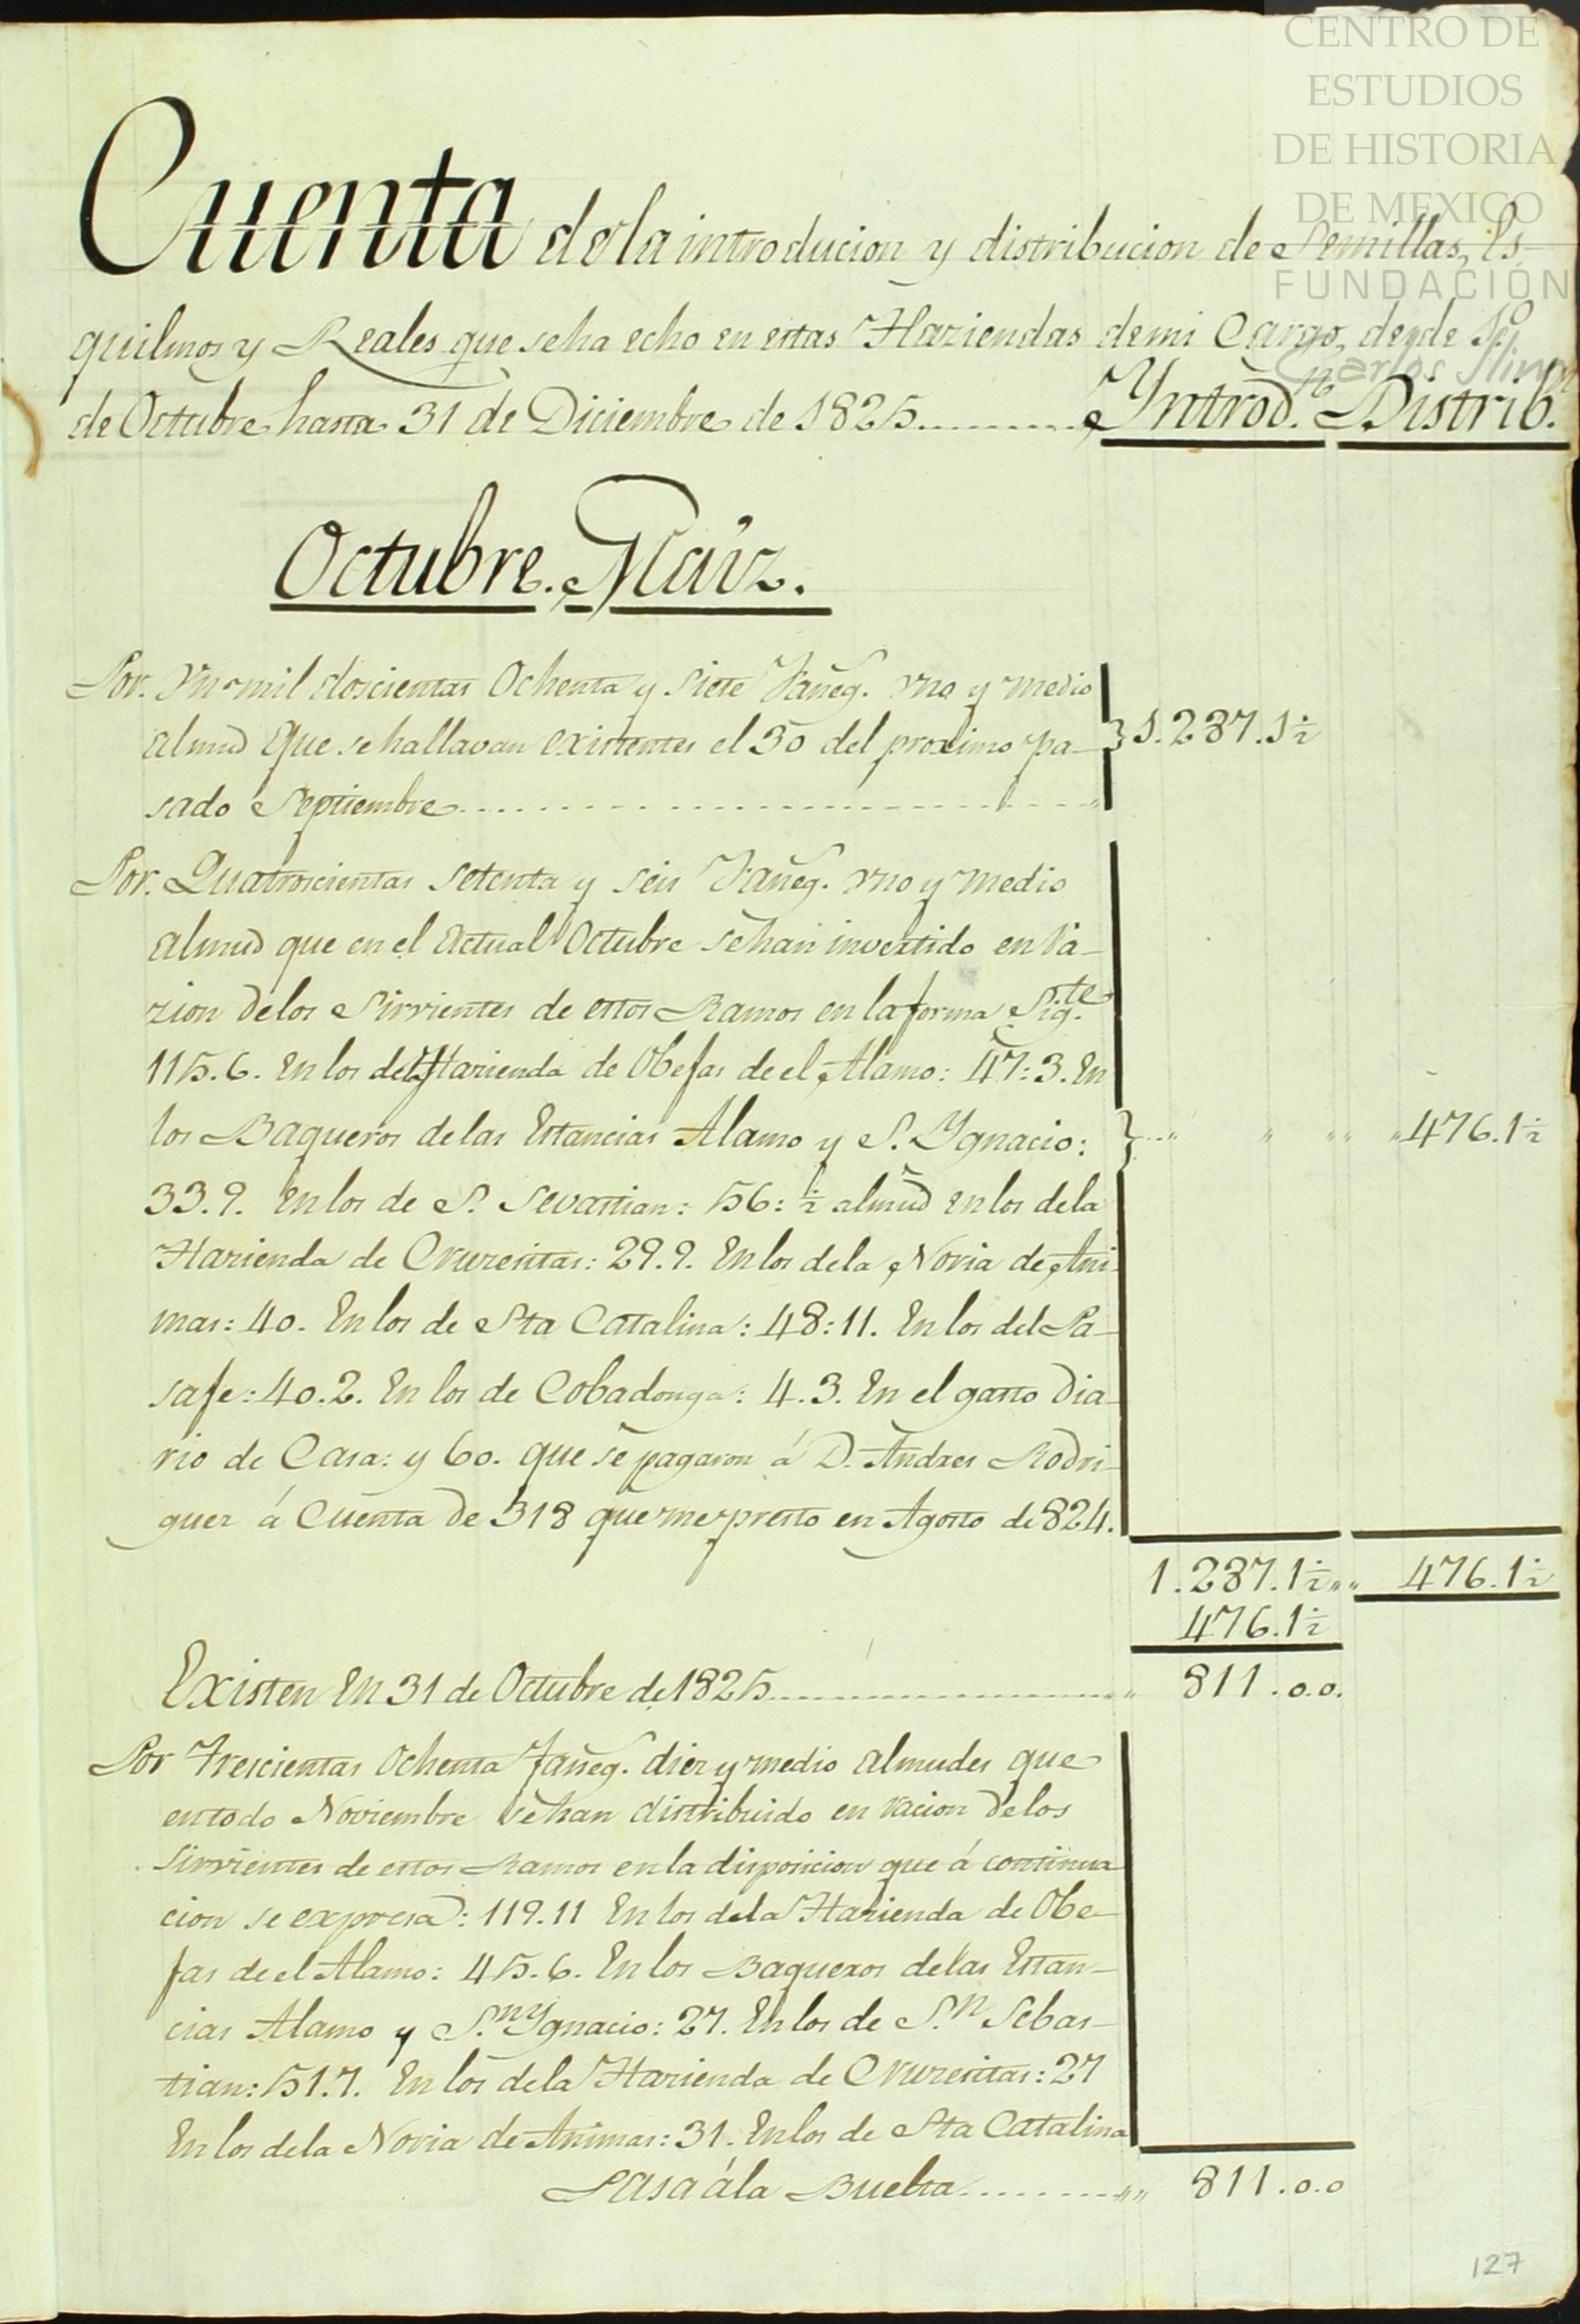 CENTRO DE
ESTUDIOS
DE HISTORIA
DE MEXICO
FUNDACIÓN
Carlos Slim
Cuenta de la introducion y distribucion de Semillas, Es-
quilmos y Reales que se ha echo en estas Haziendas de mi Cargo, desde 1º
de Octubre hasta 31 de Diciembre de 1825.......... Yntrod.n Distrib.n
Octubre. Maiz.
Por. Un mil doscientas Ochenta y Siete Fañeg. uno y medio
almud que se hallavan existentes el 30 del proximo pa- } 1.287.1½
sado Septiembre
Por. Quatrocientas setenta y seis Fañeg. uno y medio
almud que en el Actual Octubre se han invertido en ra-
zion de los Sirvientes de estos Ramos en la forma Sig.te
115.6. En los de la Hazienda de Obejas de el Alamo: 47:3. En
los Baqueros de las Estancias Alamo y S. Ygnacio: } 476.1½
33.9. En los de S. Sevastian: 56: ½ almud en los de la
Hazienda de Cruzesitas: 29.9. En los de la Noria de Ani-
mas: 40. En los de Sta Catalina: 48:11. En los del Pa-
saje: 40.2. En los de Cobadonga: 4.3. En el gasto dia-
rio de Casa: y 60. que se pagaron á D. Andres Rodri-
guez á Cuenta de 318 que me presto en Agosto de 824.
1.287.1½ 476.1½
476.1½
Existen En 31 de Octubre de 1825 811.0.0.
Por Trescientas Ochenta fañeg. diez y medio almudes que
en todo Noviembre se han distribuido en racion de los
Sirvientes de estos Ramos en la disposicion que á continua
cion se expresa: 119.11 En los de la Hazienda de Obe-
jas de el Alamo: 45.6. En los Baqueros de las Estan-
cias Alamo y S.n Ygnacio: 27. En los de S.n Sebas-
tian: 51.7. En los de la Hazienda de Cruzesitas: 27
En los de la Noria de Animas: 31. En los de Sta Catalina
Pasa á la Buelta 811.0.0
127